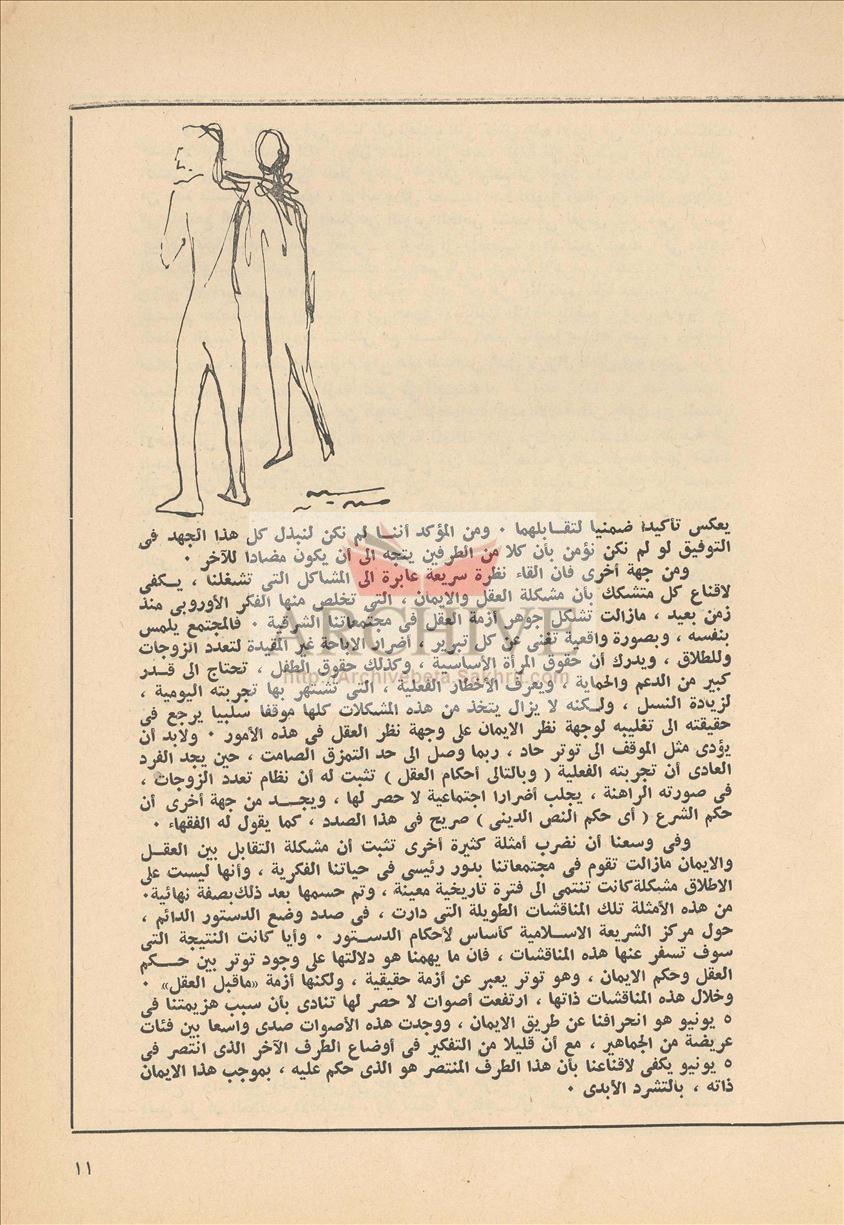 يعكس تأكيدا ضمنيا لتقابلهما ٠ ومن المؤكد أننا لم نكن لنبذل كل هذا الجهد فى
التوفيق لو لم نكن نؤمن بأن كلا من الطرفين يتجه الى أن يكون مضادا للآخر ٠
ومن جهة أخرى فان القاء نظرة سريعة عابرة الى المشاكل التى تشغلنا ، يكفى
لاقناع كل متشكك بأن مشكلة العقل والايمان ، التى تخلص منها الفكر الأوروبى منذ
زمن بعيد ، مازالت تشكل جوهر أزمة العقل فى مجتمعاتنا الشرقية ٠ فالمجتمع يلمس
بنفسه ، وبصورة واقعية تغنى عن كل تبرير ، أضرار الاباحة غير المقيدة لتعدد الزوجات
وللطلاق ، ويدرك أن حقوق المرأة الأساسية ، وكذلك حقوق الطفل ، تحتاج الى قدر
كبير من الدعم والحماية ، ويعرف الأخطار الفعلية ، التى تشتهر بها تجربته اليومية ،
لزيادة النسل ، ولكنه لا يزال يتخذ من هذه المشكلات كلها موقفا سلبيا يرجع فى
حقيقته الى تغليبه لوجهة نظر الايمان على وجهة نظر العقل فى هذه الأمور ٠ ولابد أن
يؤدى مثل الموقف الى توتر حاد ، ربما وصل الى حد التمزق الصامت ، حين يجد الفرد
العادى أن تجربته الفعلية ( وبالتالى أحكام العقل ) تثبت له أن نظام تعدد الزوجات ،
فى صورته الراهنة ، يجلب أضرارا اجتماعية لا حصر لها ، ويجد من جهة أخرى أن
حكم الشرع ( أى حكم النص الدينى ) صريح فى هذا الصدد ، كما يقول له الفقهاء ٠
وفى وسعنا أن نضرب أمثلة كثيرة أخرى تثبت أن مشكلة التقابل بين العقل
والايمان مازالت تقوم فى مجتمعاتنا بدور رئيسى فى حياتنا الفكرية ، وأنها ليست على
الاطلاق مشكلة كانت تنتمى الى فترة تاريخية معينة ، وتم حسمها بعد ذلك بصفة نهائية٠
من هذه الأمثلة تلك المناقشات الطويلة التى دارت ، فى صدد وضع الدستور الدائم ،
حول مركز الشريعة الاسلامية كأساس لأحكام الدستور ٠ وأيا كانت النتيجة التى
سوف تسفر عنها هذه المناقشات ، فان ما يهمنا هو دلالتها على وجود توتر بين حكم
العقل وحكم الايمان ، وهو توتر يعبر عن أزمة حقيقية ، ولكنها أزمة «ماقبل العقل» ٠
وخلال هذه المناقشات ذاتها ، ارتفعت أصوات لا حصر لها تنادى بأن سبب هزيمتنا فى
٥ يونيو هو انحرافنا عن طريق الايمان ، ووجدت هذه الأصوات صدى واسعا بين فئات
عريضة من الجماهير ، مع أن قليلا من التفكير فى أوضاع الطرف الآخر الذى انتصر فى
٥ يونيو يكفى لاقناعنا بأن هذا الطرف المنتصر هو الذى حكم عليه ، بموجب هذا الايمان
ذاته ، بالتشرد الأبدى ٠
١١
ARCHIVE
http://Archivebeta.Sakhrit.com